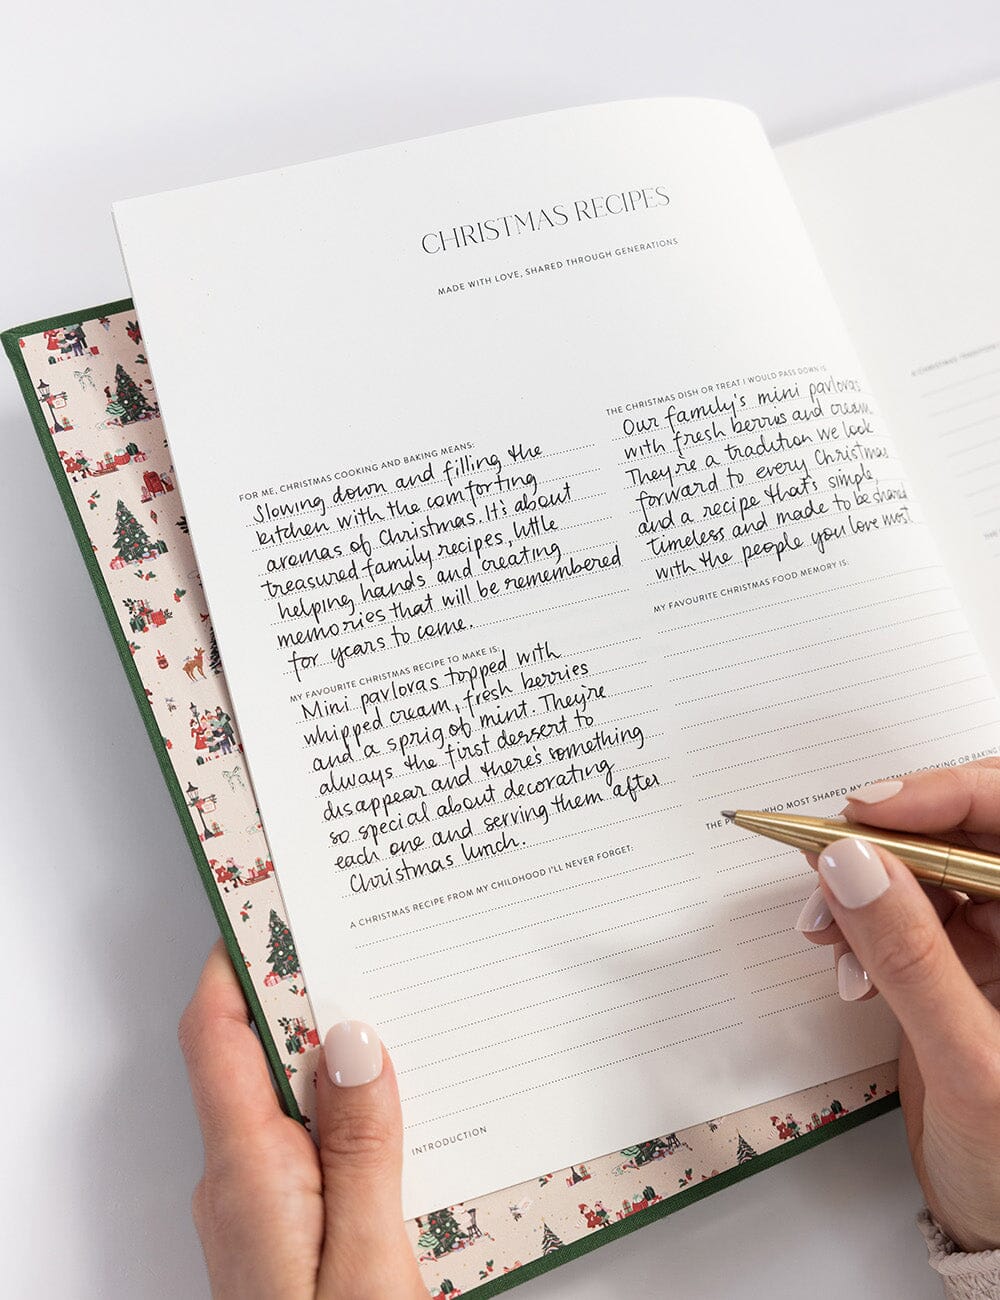 CHRISTMAS RECIPES
MADE WITH LOVE, SHARED THROUGH GENERATIONS
FOR ME, CHRISTMAS COOKING AND BAKING MEANS:
Slowing down and filling the
kitchen with the comforting
aromas of Christmas. It's about
treasured family recipes, little
helping hands and creating
memories that will be remembered
for years to come.
MY FAVOURITE CHRISTMAS RECIPE TO MAKE IS:
Mini pavlovas topped with
whipped cream, fresh berries
and a sprig of mint. They're
always the first dessert to
disappear and there's something
so special about decorating
each one and serving them after
Christmas lunch.
A CHRISTMAS RECIPE FROM MY CHILDHOOD I'LL NEVER FORGET:
THE CHRISTMAS DISH OR TREAT I WOULD PASS DOWN IS
Our family's mini pavlovas
with fresh berries and cream.
They're a tradition we look
forward to every Christmas
and a recipe that's simple,
timeless and made to be shared
with the people you love most.
MY FAVOURITE CHRISTMAS FOOD MEMORY IS:
THE WHO MOST SHAPED MY CHRISTMAS COOKING OR BAKING
INTRODUCTION
A CHRISTMAS TRADITION
THE